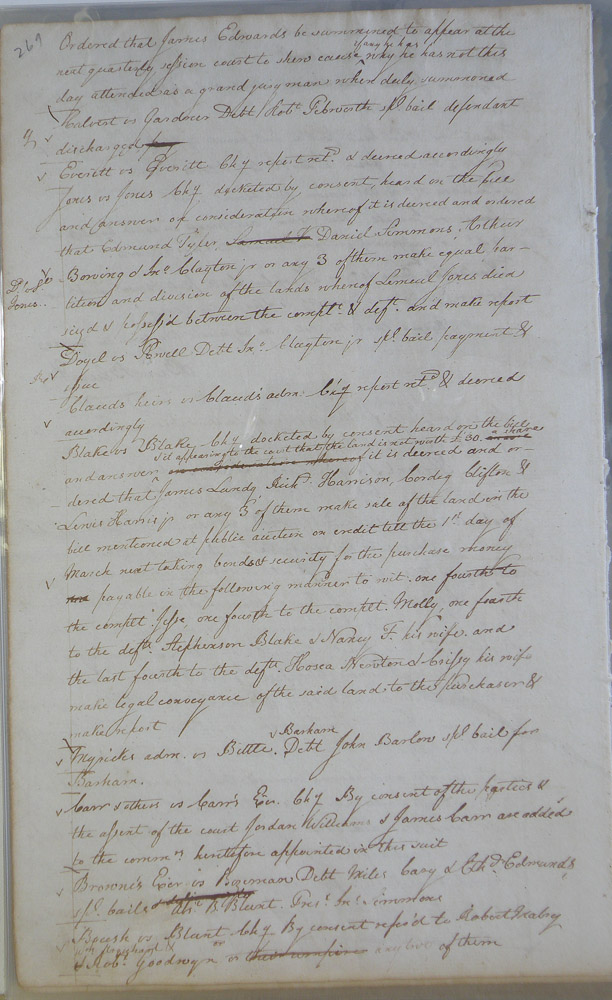 269
Ordered that James Edwards be summoned to appear at the
next quarterly session court to shew cause why he has not this
day attended as a grand jury man when duly summoned
Halvert vs Gardner Debt Robt Pebworth spl. bail defendant
discharged
Everitt vs Everitt Chy report retd. & decreed accordingly
Jones vs Jones Chy docketed by consent, heard on the bill
and answer on consideration whereof it is decreed and ordered
that Edmund Tyler, Daniel Simmons, Arthur
Bowing & Jno. Clayton jr or any 3 of them make equal par-
Jones.
tition and division of the lands whereof Lemuel Jones died
siezd & possess'd between the complt. & deft. and make report
Doyel vs Powell Debt Jno. Clayton jr spl. bail payment &
issue
Clauds heirs vs Claud's adm. Chy report retd. & decreed
accordingly
Blake vs Blake Chy docketed by consent heard on the bill
& it appearing to the court that the land is not worth £30. a share
and answer it is decreed and or-
dered that James Lundy Richd. Harrison, Cordey Clifton &
Lewis Harris jr or any 3 of them make sale of the land in the
bill mentioned at public auction on credit till the 1st day of
March next taking bond & security for the purchase money
payable in the following manner to wit. one fourth to
the complt. Jesse, one fourth to the complt. Molly, one fourth
to the defts. Stephenson Blake & Nancy F. his wife and
the last fourth to the defts. Hosea Newton & Crissy his wife
make legal conveyance of the said land to the purchaser &
make report
Barham
Myricks adm. vs Bittle. Debt John Barlow spl bail for
Barham.
Carr & others vs Carr's Exr. Chy By consent of the parties &
the assent of the court Jordan Williams & James Carr are added
to the commrs heretofore appointed in this suit
Browne's Exr vs Boziman Debt Miles Cary & Ethd. Edmunds
spl. bails B. Blunt, Jno. Simmons
Boush vs Blunt Chy By consent refer'd to Robert Mabry
& Robt. Goodwyn or of them